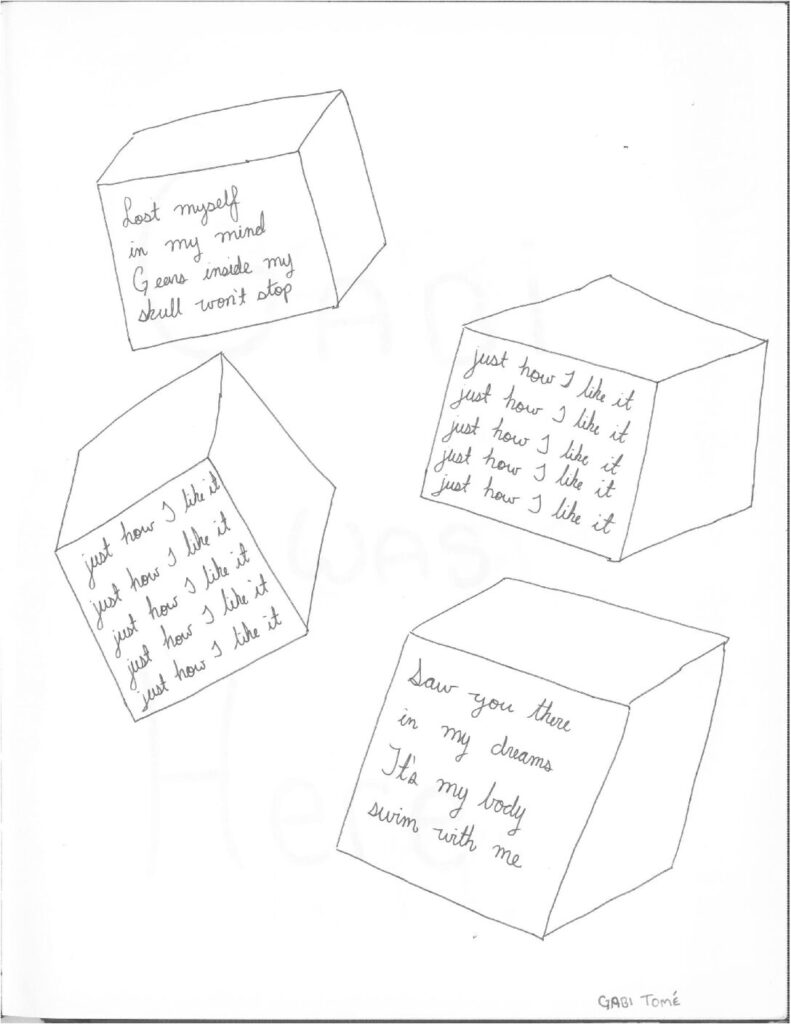 Lost myself
in my mind
Gears inside my
skull won't stop
just how I like it
just how I like it
just how I like it
just how I like it
just how I like it
just how I like it
just how I like it
just how I like it
just how I like it
just how I like it
Saw you there
in my dreams
It's my body
swim with me
GABI TOMÉ
Gabi
was
Here